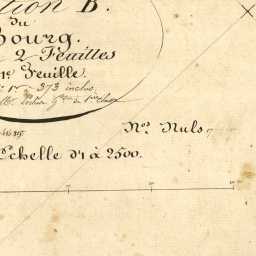 tion B.
du
Bourg.
2 Feuilles
1re Feuille.
1 à 373 inclus
Nos Nuls
Echelle d'1 à 2500.